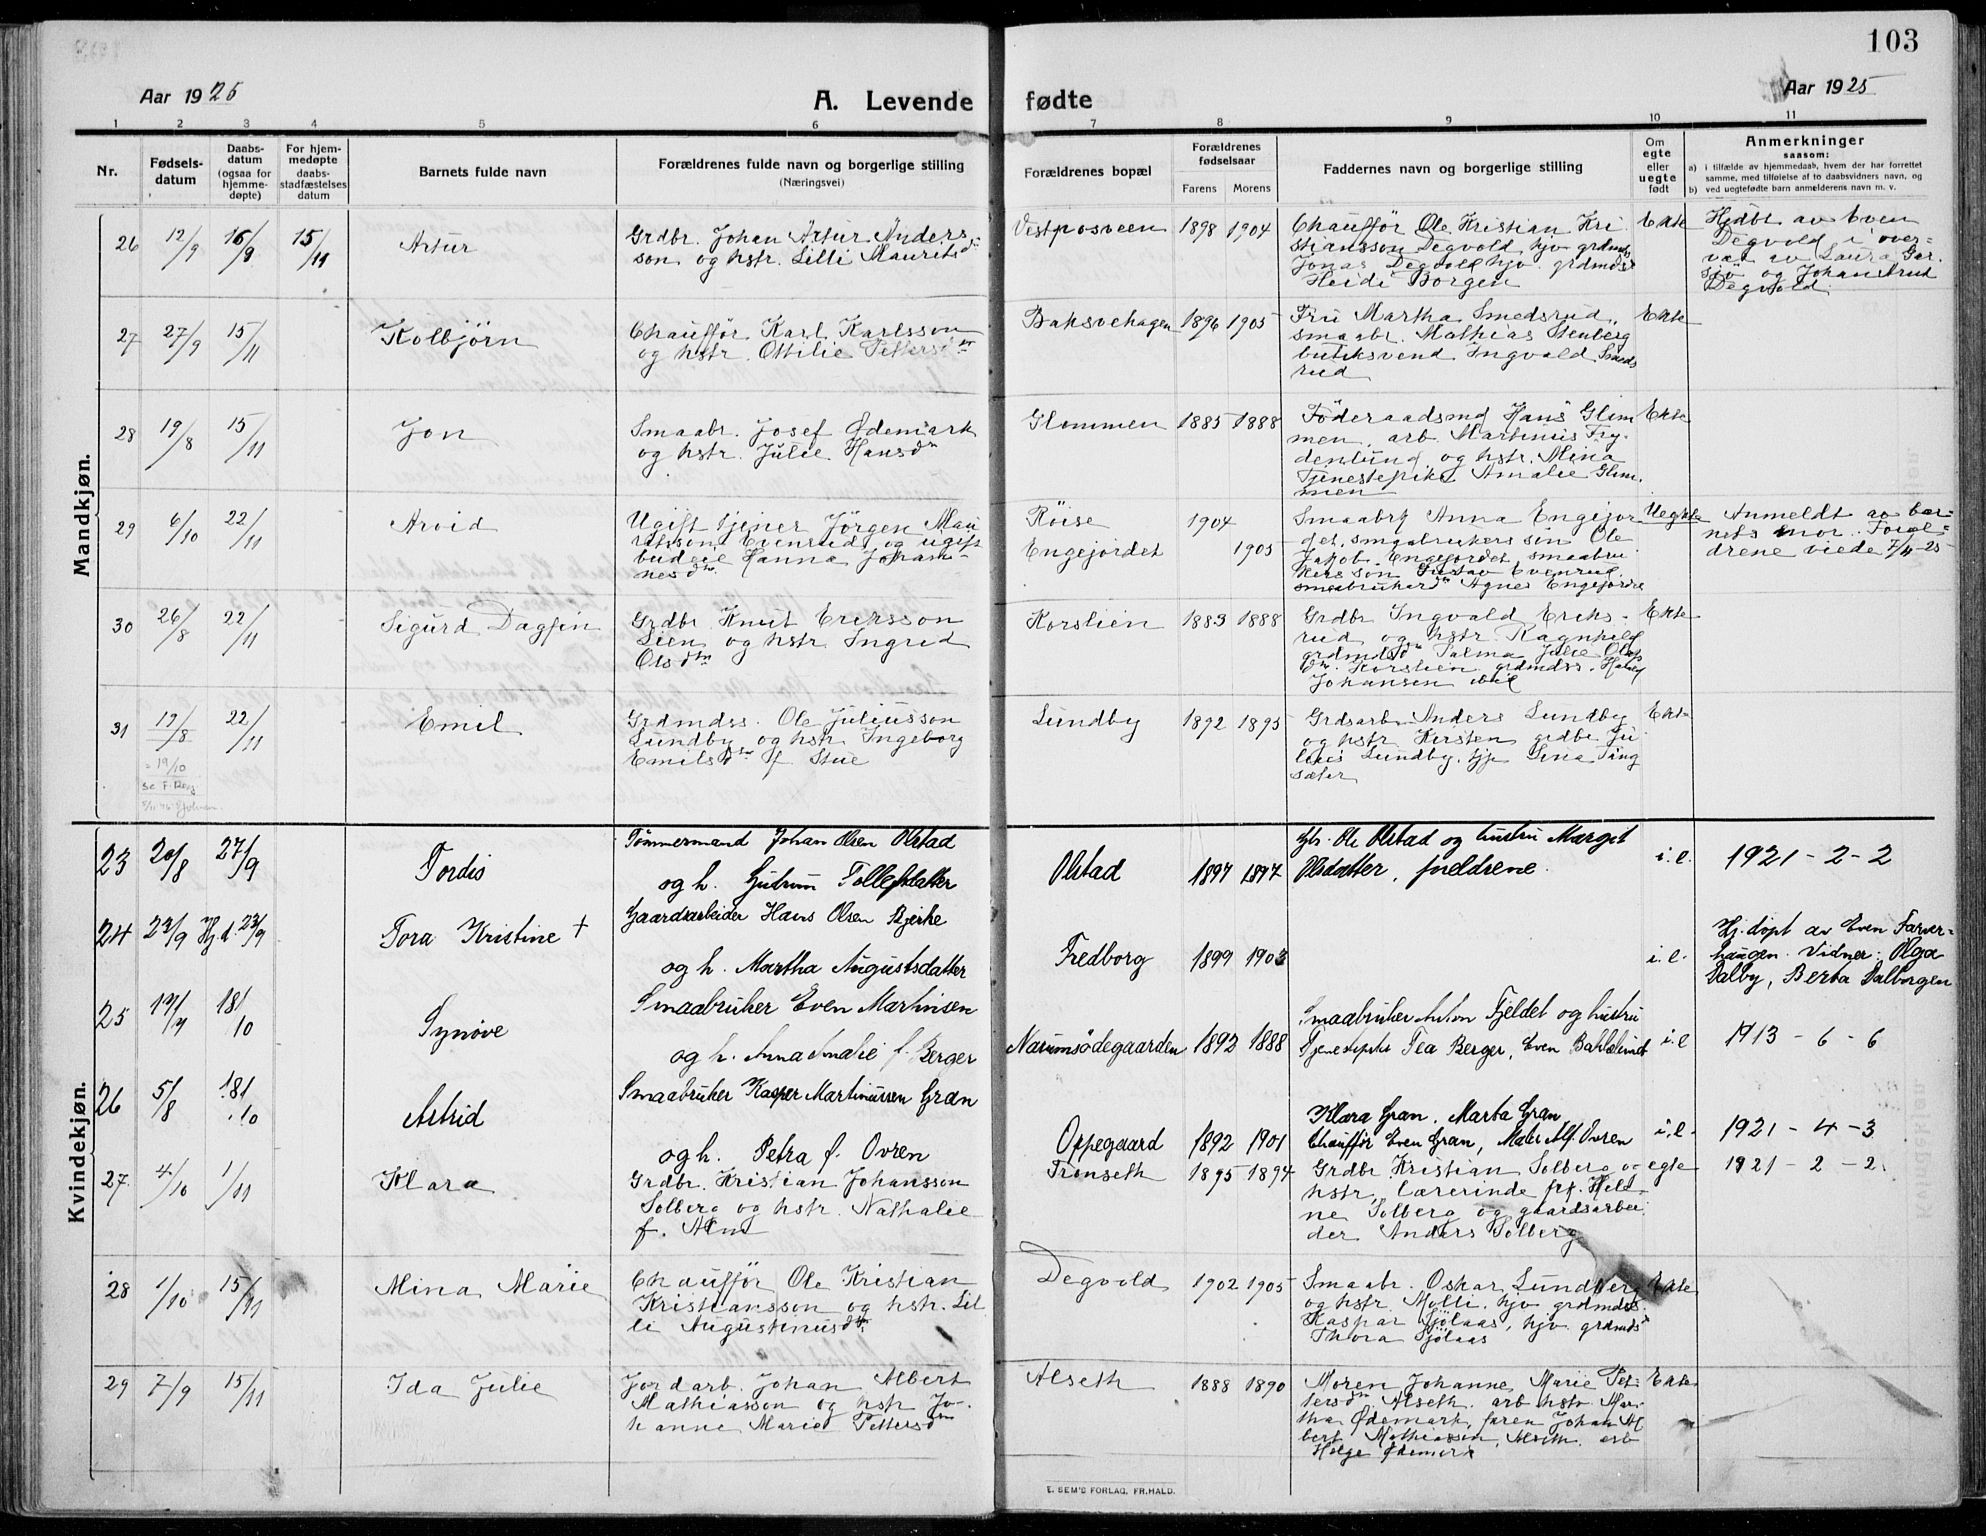 103
Aar 1925
A. Levende fødte
Aar 1925
1 2 3 4 5 6 7 8 9 10 11
Nr.
Fødsels-
datum
Daabs-
datum
(ogsaa for
hjemme-
døpte)
For hjem-
medøpte
daabs-
stadfæstelses
datum
Barnets fulde navn
Forældrenes fulde navn og borgerlige stilling
(Næringsvei)
Forældrenes bopæl
Forældrenes
fødselsaar
Farens Morens
Faddernes navn og borgerlige stilling
Om
egte
eller
uegte
født
Anmerkninger
saasom:
a) i tilfælde av hjemmedaab, hvem der har forrettet
samme, med tilføielse af to daabsvidners navn, og
b) ved uegtefødte barn anmelderens navn m. v.
Mandkjøn.
26 12/9 16/9 15/11 Artur
Grdbr. Johan Artur Anders
son og hstr. Lilli Mauritsdtr
Vestposveen 1898 1904
Chauffør Ole Kristian Kri
stiansson Degvold, hjv. grdmds
Jonas Degvold hjv. grdmdsd
Heidi Borgen
Ekte
Hjdbt av Even
Degvold i over-
vær av Laura Gar
sjø og Johan Strud
Degvold
27 27/9 15/11 Kolbjörn
Chauffør Karl Karlsson
og hstr. Ottilie Pettersdtr
Baksvehagen 1896 1905
Fru Martha Smedsrud,
smaabr. Mathias Stenberg
butiksvend Ingvald Smeds
rud
Ekte
28 19/8 15/11 Jon
Smaabr. Josef Ødemark
og hstr. Julie Hansdtr
Glommen 1885 1888
Föderaadsmd Hans Glom
men, arb. Martinius Fry-
denlund og hstr. Alma
Tjenestepike Amalie Glom
men
Ekte
29 6/10 22/11 Arvid
Ugift tjener Jörgen Mau
ritsson Evenrud og ugift
budeie Hanna Johan-
nesdtr
Röise 1904
Engejordet 1905
Smaabrk Anna Engejor
det, smaabrukers sön Ole
Jakob Engejordet smaabru
kers sön Gustav Evenrud
smaabrukerdtr Agnes Engejordet
Uegte
Anmeldt av bar-
nets mor. Foræl-
drene viede 7/11-25
30 26/8 22/11 Sigurd Dagfin
Grdbr. Knut Eriksson
Lien og hstr Ingrid
Olsdtr
Korslien 1883 1888
Grdbr Ingvald Eriks-
rud og hstr. Ragnhild
grdmdsdtr Palma Julie Ols
dtr. Korslien grdmdss. Harald
Johansen ibid
Ekte
31 19/8 22/11 Emil
= 19/10
se F. Reg
Grdmdss. Ole Juliusson
Lundby og hstr Ingeborg
Emilsdtr f. Stue
Lundby 1892 1895
Grdsarb. Anders Lundby
og hstr Kirsten grdbr Ju
lius Lundby, tjp Lina Tang
sæter
Ekte
Kvindekjøn.
23 20/8 27/9 Tordis
Tømmermand Johan Olsen Olstad
og h. Gutrun Tollefsdatter
Olstad 1897 1897
Gb. Ole Olstad og hustru Marget
Olsdatter, foreldrene.
i.e. 1921 - 2 - 2
24 22/9 Hj.d 23/9 Tora Kristine +
Gaardsarbeider Hans Olsen Bjerke
og h. Martha Augustsdatter
Fredborg 1899 1903
i.e.
Hj. døpt av Even Farver-
haugen. Vidner: Olga
Dalby, Berta Dalborgen
25 17/7 18/10 Synøve
Smaabruker Even Martinsen
og h. Anna Amalie f. Berger
Narumsødegaarden 1892 1888
Smaabruker Anton Fjeldet og hustru
Tjenestepike Tea Berger, Even Bakkelund
i.e 1913 - 6 - 6
26 5/8 18/10 Astrid
Smaabruker Kasper Martinussen Gran
og h. Petra f. Ovren
Oppegaard 1892 1901
Klara Gran, Marta Gran
Chauffør Even Gran, Maler Alf. Ovren
i.e. 1921 - 4 - 3
27 4/10 1/11 Klara
Grdbr. Kristian Johansson
Solberg og hstr. Nathalie
f. Alm
Tronseth 1895 1894
Grdbr Kristian Solberg og
hstr, lærerinde frk. Held-
ne Solberg og gaardsarbei
der Anders Solberg
egte 1921 - 2 - 2
28 1/10 15/11 Mina Marie
Chauffør Ole Kristian
Kristiansson og hstr. Lil
li Augustinusdtr
Degvold 1902 1905
Smaabr. Oskar Lundberg
og hstr Molli, hjv grdmds.
Kaspar Sjölaas, hjv. grdmdsd
Thora Sjölaas
Ekte
29 7/9 15/11 Ida Julie
Jordarb. Johan Albert
Mathiasson og hstr Jo-
hanne Marie Pettersdtr
Alseth 1888 1890
Moren Johanne Marie Pet
tersdtr Alseth. arb hstr Mar-
tha Ødemark, faren Johan Al
bert Mathiassen, Alseth. arb
Helge Ødemark
Ekte
E. SEM'S FORLAG, FR.HALD.